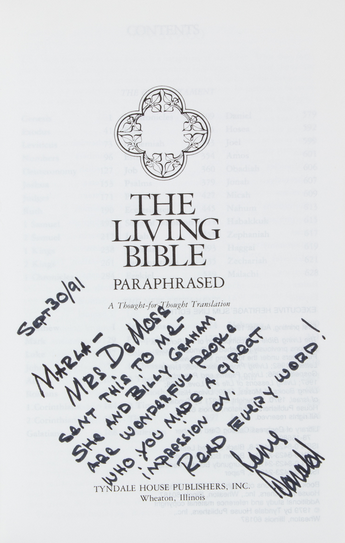 THE
LIVING
BIBLE
PARAPHRASED
A Thought-for-Thought Translation
Sept 30/91
MARLA-
MRS DEMOSS
SENT THIS TO ME-
SHE AND BILLY GRAHAM
ARE WONDERFUL PEOPLE
WHO YOU MADE A GREAT
IMPRESSION ON.
READ EVERY WORD!
Love
Donald
TYNDALE HOUSE PUBLISHERS, INC.
Wheaton, Illinois